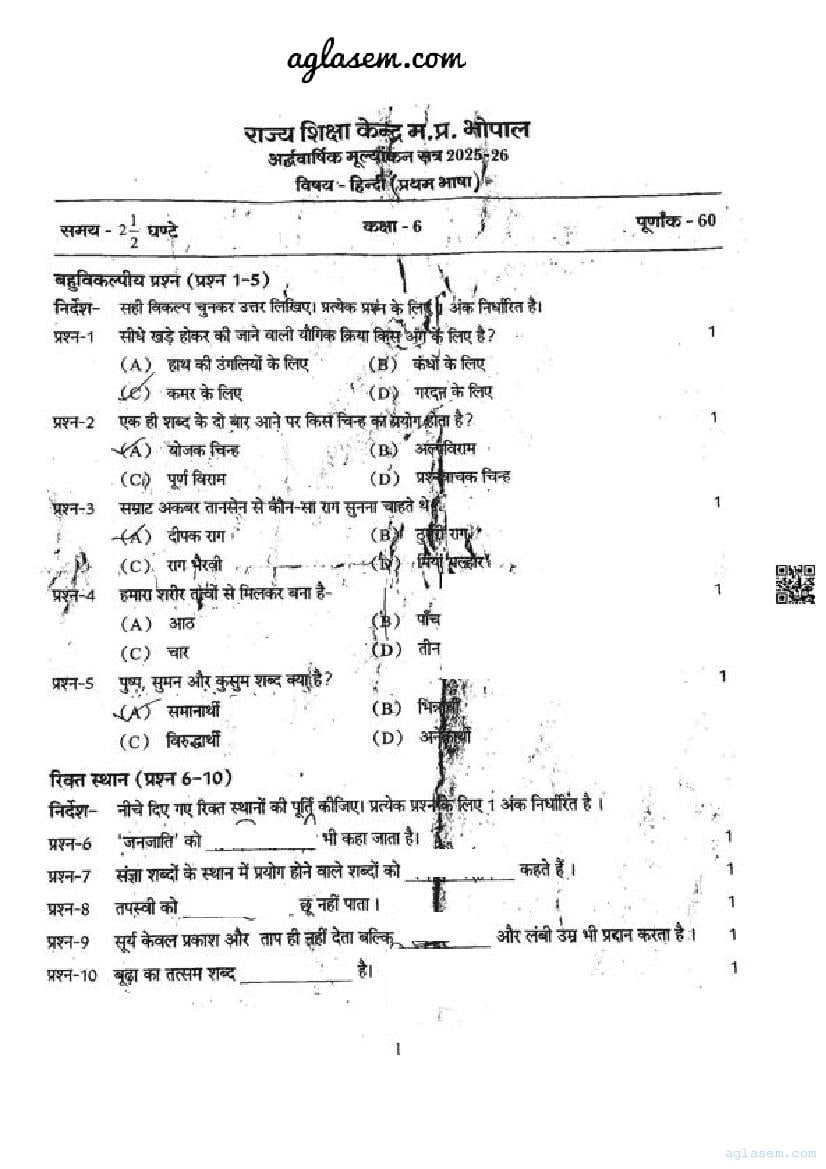 aglasem.com
राज्य शिक्षा केन्द्र म.प्र. भोपाल
अर्द्धवार्षिक मूल्यांकन सत्र 2025-26
विषय - हिन्दी (प्रथम भाषा)
समय - 2 1/2 घण्टे कक्षा - 6 पूर्णांक - 60
बहुविकल्पीय प्रश्न (प्रश्न 1-5)
निर्देश- सही विकल्प चुनकर उत्तर लिखिए। प्रत्येक प्रश्न के लिए 1 अंक निर्धारित है।
प्रश्न-1 सीधे खड़े होकर की जाने वाली यौगिक क्रिया किस अंग के लिए है? 1
(A) हाथ की उंगलियों के लिए (B) कंधों के लिए
(C) कमर के लिए (D) गरदन के लिए
प्रश्न-2 एक ही शब्द के दो बार आने पर किस चिन्ह का प्रयोग होता है? 1
(A) योजक चिन्ह (B) अल्पविराम
(C) पूर्ण विराम (D) प्रश्नवाचक चिन्ह
प्रश्न-3 सम्राट अकबर तानसेन से कौन-सा राग सुनना चाहते थे 1
(A) दीपक राग (B) राग
(C) राग भैरवी (D) मियां मल्हार
प्रश्न-4 हमारा शरीर तत्वों से मिलकर बना है- 1
(A) आठ (B) पाँच
(C) चार (D) तीन
प्रश्न-5 पुष्प, सुमन और कुसुम शब्द क्या है? 1
(A) समानार्थी (B) भिन्नार्थी
(C) विरुद्धार्थी (D) अनेकार्थी
रिक्त स्थान (प्रश्न 6-10)
निर्देश- नीचे दिए गए रिक्त स्थानों की पूर्ति कीजिए। प्रत्येक प्रश्न के लिए 1 अंक निर्धारित है ।
प्रश्न-6 'जनजाति' को ____________ भी कहा जाता है। 1
प्रश्न-7 संज्ञा शब्दों के स्थान में प्रयोग होने वाले शब्दों को ____________ कहते हैं । 1
प्रश्न-8 तपस्वी को ____________ छू नहीं पाता । 1
प्रश्न-9 सूर्य केवल प्रकाश और ताप ही नहीं देता बल्कि __________ और लंबी उम्र भी प्रदान करता है । 1
प्रश्न-10 बूढ़ा का तत्सम शब्द ____________ है। 1
1
aglasem.com